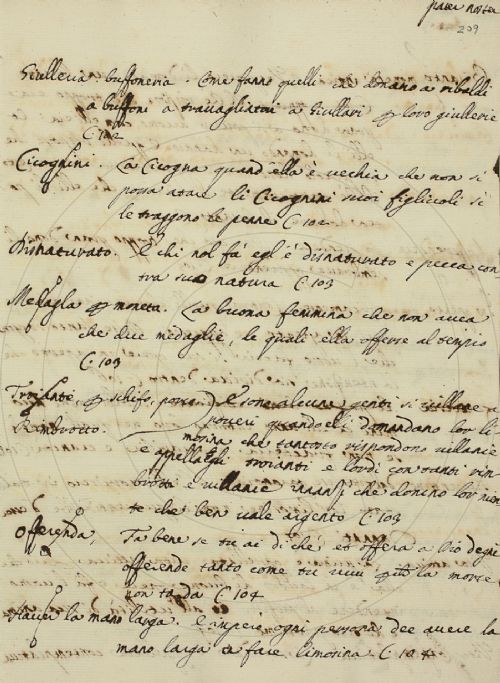 pater noster
209
Giulleria buffoneria. Come fanno quelli che donano a ribaldi
a buffoni a travagliatori a Giullari p loro giullerie
C 102
Cicognini. La Cicogna quand'ella è vechia che non si
possa atare li Cicognini suoi figliuoli si
le traggono le penne C 102
Disnaturato. E chi nol fà egl'è disnaturato e pecca con
tra sua natura C 103
Medagla p moneta. La buona femmina che non avea
che due medaglie, le quali ella offerse al tempio
C 103
Troiante, p schifo, E sono alcune genti si villane
Rimbrotto. poveri quando elli domandano lor li
mosina che tantosto rispondono villanie
e appellagli troianti e lordi con tanti rim
brotti e villanie inanzi che donino lor nien
te che ben vale argento C 103
Offerenda, Ta bene se tu ai di che et offera a Dio degne
offerende tanto come tu vivi la morte
non tarda C 104
Haver la mano larga. E imperò ogni persona dee avere la
mano larga a fare limosina. C 104